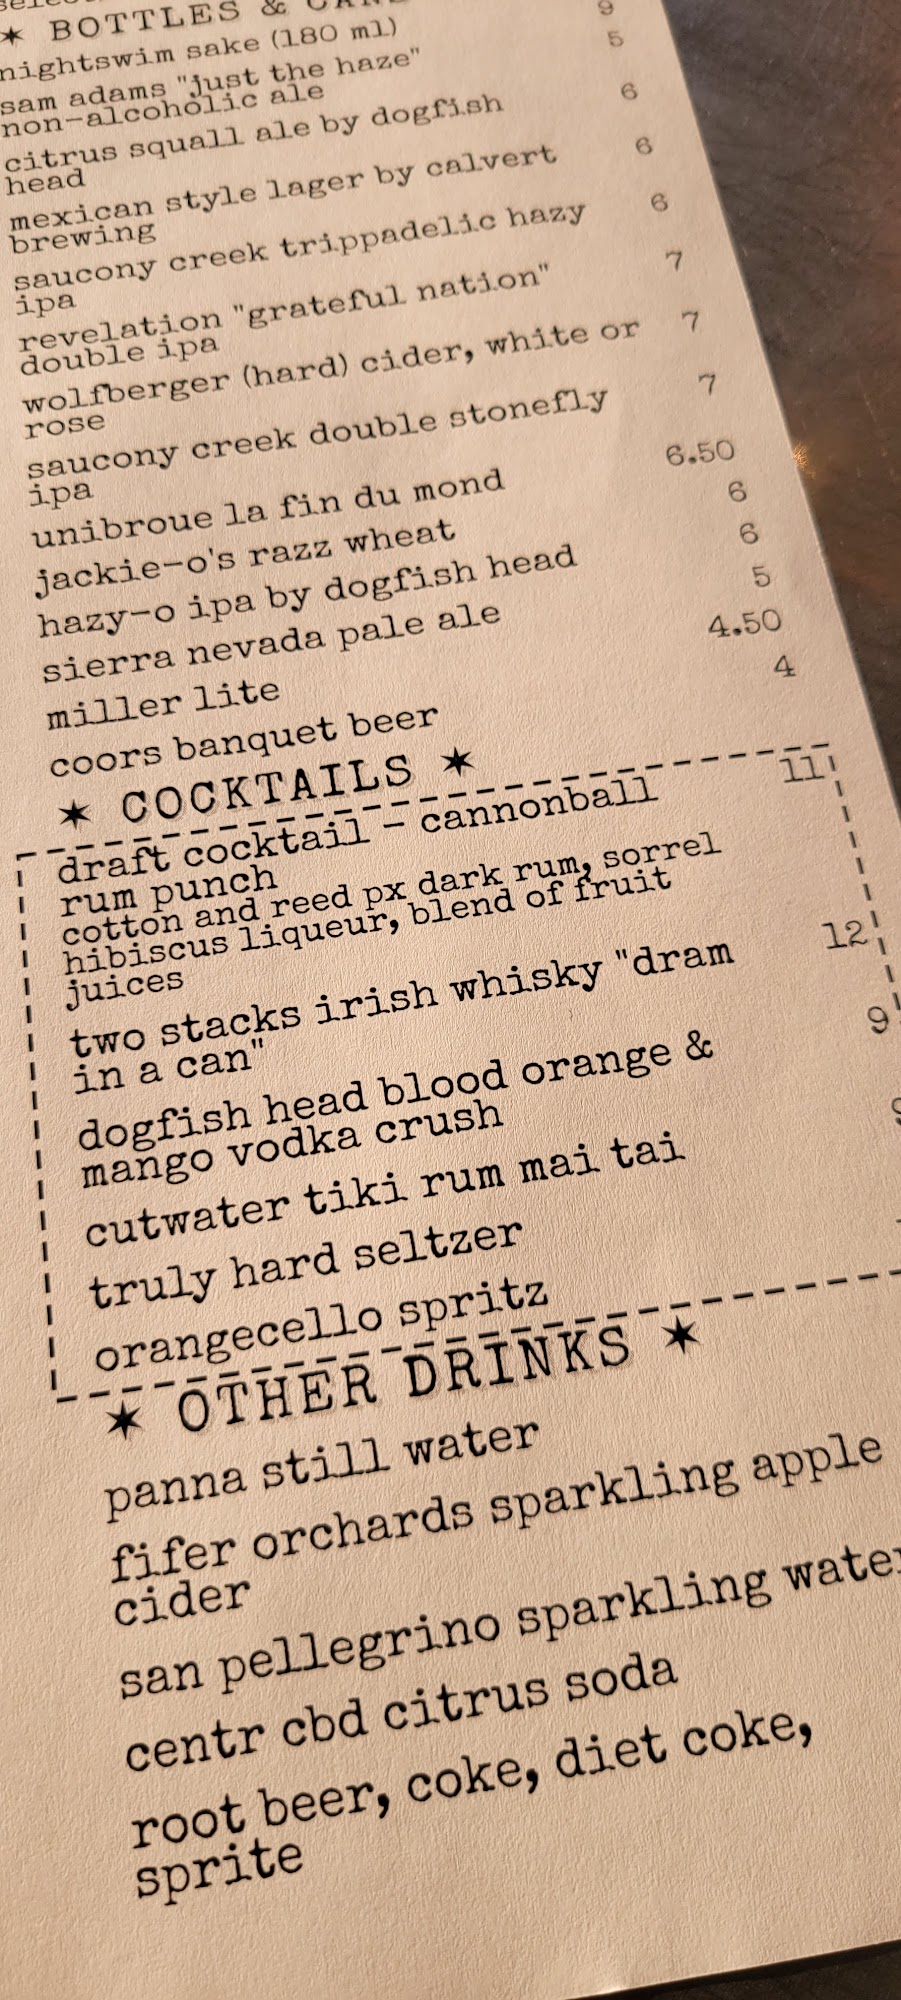 ✶ BOTTLES &
nightswim sake (180 ml) 9
sam adams "just the haze" 5
non-alcoholic ale
citrus squall ale by dogfish 6
head
mexican style lager by calvert 6
brewing
saucony creek trippadelic hazy 6
ipa
revelation "grateful nation" 7
double ipa
wolfberger (hard) cider, white or 7
rose
saucony creek double stonefly 7
ipa
unibroue la fin du mond 6.50
jackie-o's razz wheat 6
hazy-o ipa by dogfish head 6
sierra nevada pale ale 5
miller lite 4.50
coors banquet beer 4
✶ COCKTAILS ✶
draft cocktail - cannonball 11
rum punch
cotton and reed px dark rum, sorrel
hibiscus liqueur, blend of fruit
juices
two stacks irish whisky "dram 12
in a can"
dogfish head blood orange & 9
mango vodka crush
cutwater tiki rum mai tai
truly hard seltzer
orangecello spritz
✶ OTHER DRINKS ✶
panna still water
fifer orchards sparkling apple
cider
san pellegrino sparkling water
centr cbd citrus soda
root beer, coke, diet coke,
sprite